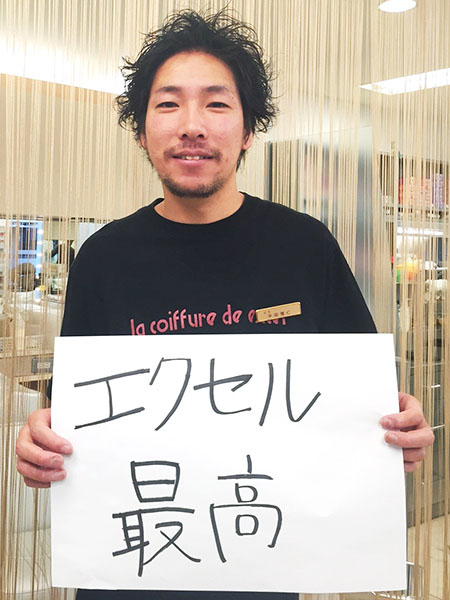 la coiffure de
エクセル
最高